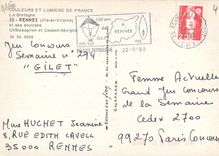 COULEURS ET LUMIERE DE FRANCE
La Bretagne
35 - RENNES (Ille-et-Vilaine)
et ses environs
Châteaugiron et Cesson-Sévigné
Jeu Concours
Semaine n° 294
"GILET"
Mme HUCHET Jeannine
8, RUE EDITH CAVELL
35000 RENNES
RENNES
22-5-92
Femme Actuelle
Grand Jeu Concours
de la Semaine
Cedex 2700
99270 Paris Concours